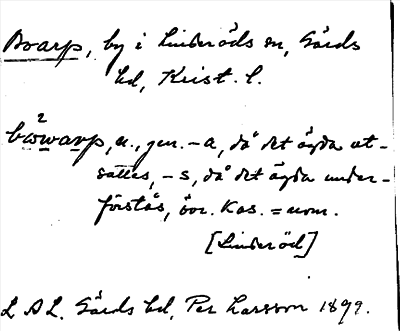 Boarp, by i Linderöds sn, Gärds
hd, Krist. l.
bo²warp, n., gen. -a, då det ägda ut-
sättes, -s, då det ägda under-
förstås, övr. kas. = nom.
[Linderöd]
L A L. Gärds hd, Per Larsson 1899.